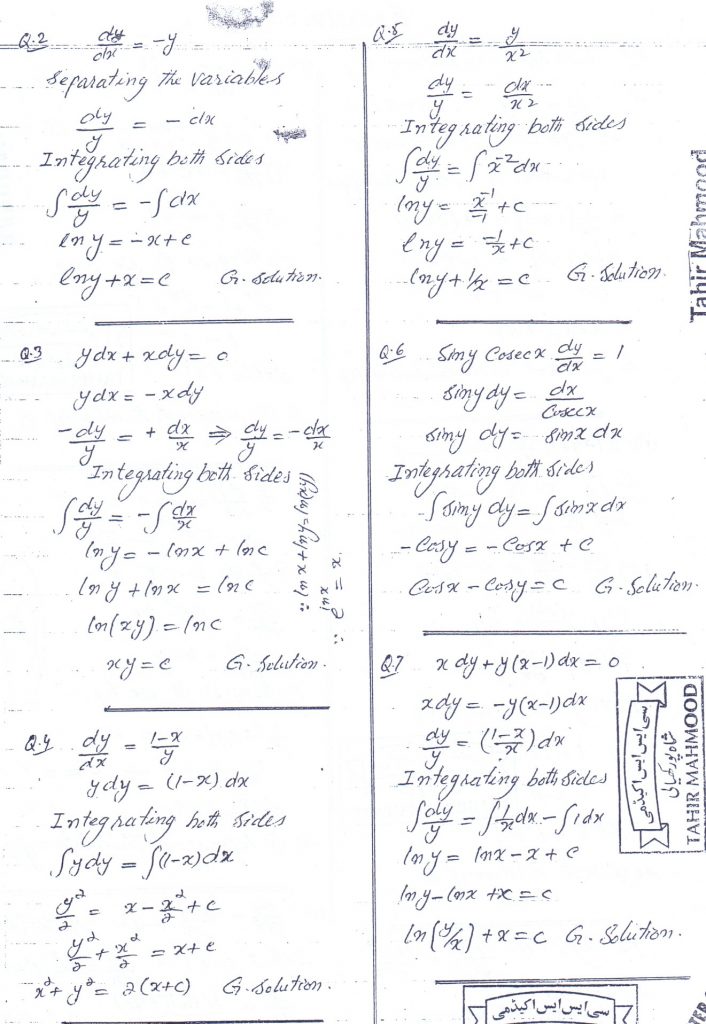 Q.2 dy/dx = -y
Separating the variables
dy/y = - dx
Integrating both sides
∫ dy/y = -∫ dx
ln y = -x + c
ln y + x = c G. Solution.
Q.3 y dx + x dy = 0
y dx = - x dy
- dy/y = + dx/x ⇒ dy/y = - dx/x
Integrating both sides
∫ dy/y = -∫ dx/x
ln y = - ln x + ln c
ln y + ln x = ln c
ln(xy) = ln c
xy = c G. Solution.
∵ ln x + ln y = ln(xy)
∵ e^{ln x} = x.
Q.4 dy/dx = (1-x)/y
y dy = (1-x) dx
Integrating both sides
∫ y dy = ∫(1-x) dx
y²/2 = x - x²/2 + c
y²/2 + x²/2 = x + c
x² + y² = 2(x+c) G. Solution.
Q.5 dy/dx = y/x²
dy/y = dx/x²
Integrating both sides
∫ dy/y = ∫ x⁻² dx
ln y = x⁻¹/-1 + c
ln y = -1/x + c
ln y + 1/x = c G. Solution.
Q.6 Siny Cosecx dy/dx = 1
Siny dy = dx/Cosecx
Siny dy = Sinx dx
Integrating both sides
∫ Siny dy = ∫ Sinx dx
- Cosy = - Cosx + c
Cosx - Cosy = c G. Solution.
Q.7 x dy + y(x-1) dx = 0
x dy = -y(x-1) dx
dy/y = ((1-x)/x) dx
Integrating both sides
∫ dy/y = ∫ 1/x dx - ∫ 1 dx
ln y = ln x - x + c
ln y - ln x + x = c
ln(y/x) + x = c G. Solution.
Tahir Mahmood
سی ایس ایس اکیڈمی
TAHIR MAHMOOD
سی ایس ایس اکیڈمی